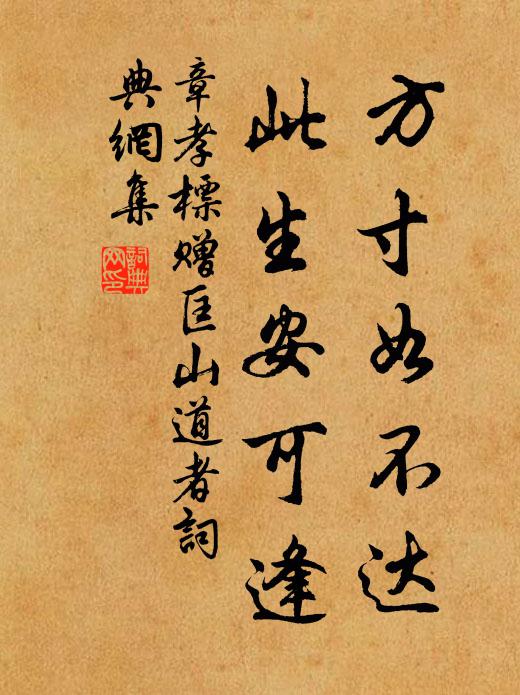 方寸如不达
此生安可逢
章孝標赠匡山道者詞
典網集
詞典
网印